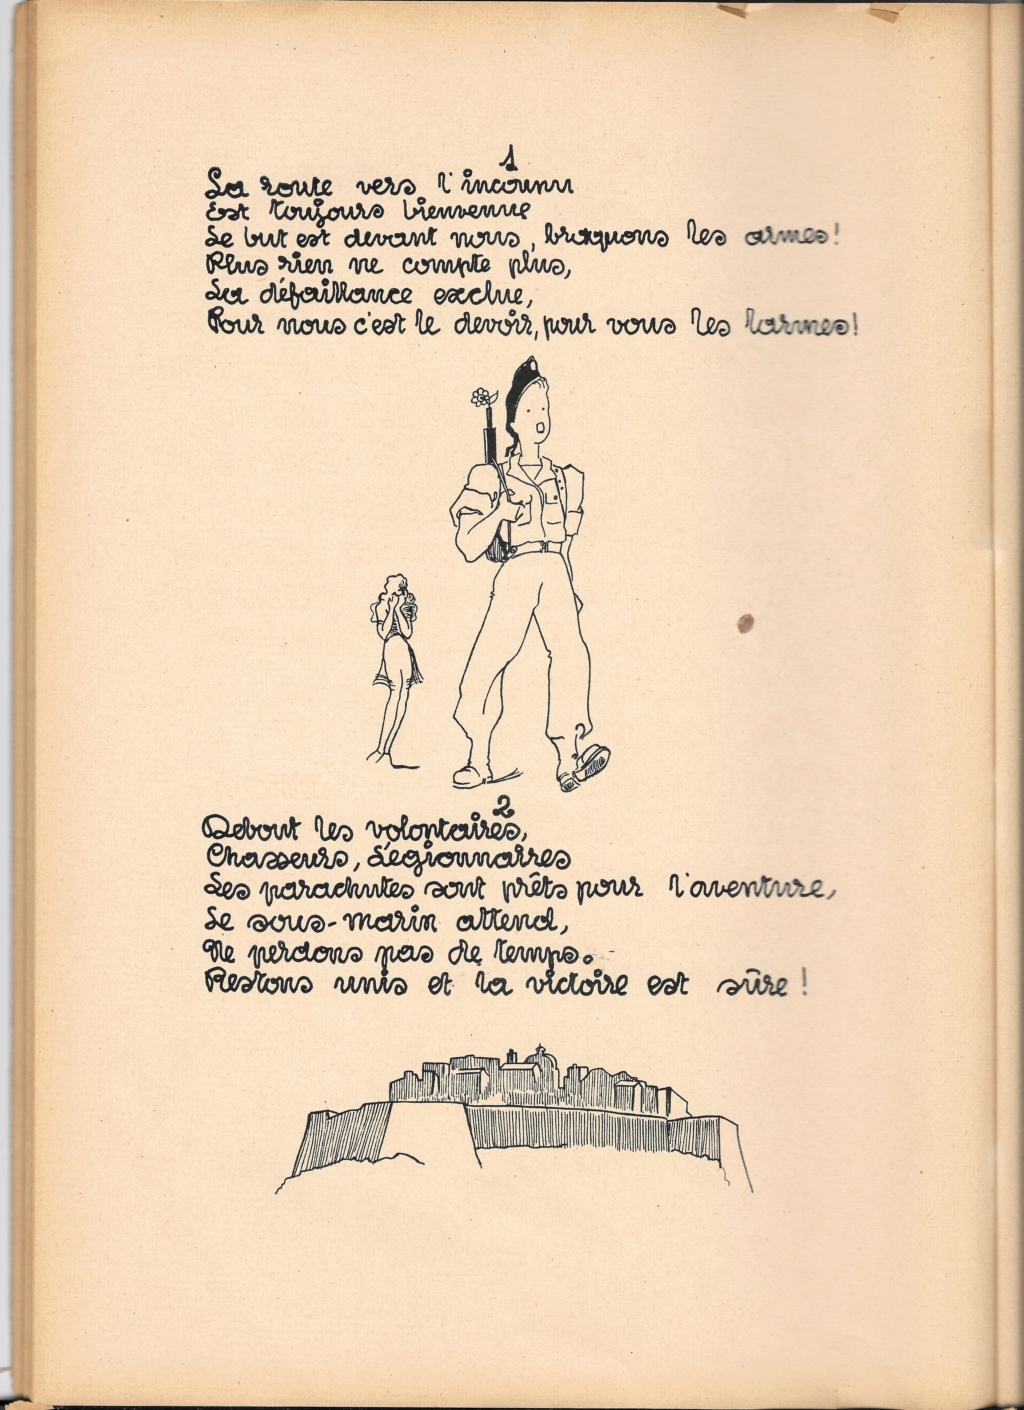 1
La route vers l'inconnu
Est toujours bienvenue
Le but est devant nous, braquons les armes!
Plus rien ne compte plus,
La défaillance exclue,
Pour nous c'est le devoir, pour vous les larmes!
2
Debout les volontaires,
Chasseurs, Légionnaires
Les parachutes sont prêts pour l'aventure,
Le sous-marin attend,
Ne perdons pas de temps.
Restons unis et la victoire est sûre!